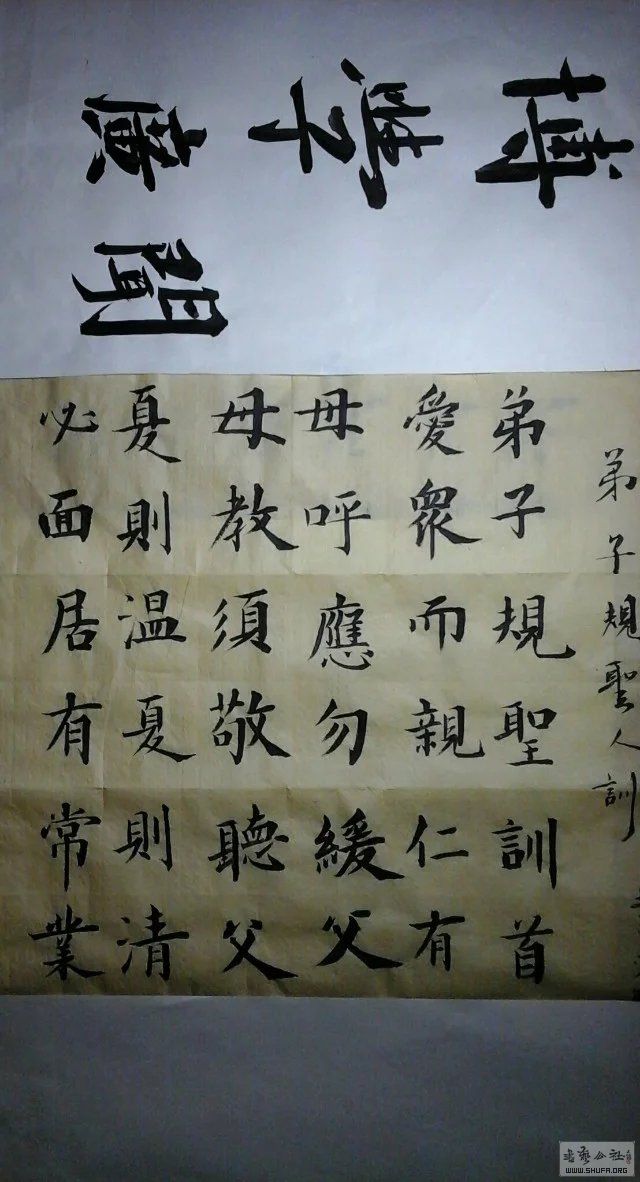 博學廣聞
弟子規聖人訓
弟子規聖訓首
愛眾而親仁有
母呼應勿緩父
母教須敬聽父
夏則溫夏則清
必面居有常業
书艺公社
WWW.SHUFA.ORG